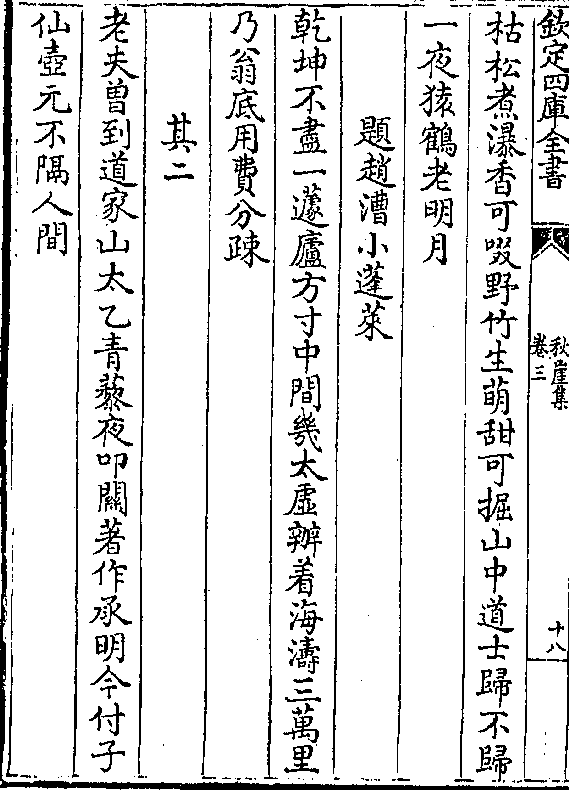 欽定四庫全書
秋崖集
卷三
十八
枯松煮瀑香可啜野竹生萌甜可掘山中道士歸不歸
一夜猿鶴老明月
題趙漕小蓬萊
乾坤不盡一蘧廬方寸中間幾太虛辦着海濤三萬里
乃翁底用費分疎
其二
老夫曽到道家山太乙青藜夜叩關著作承明今付子
仙壺元不隔人間